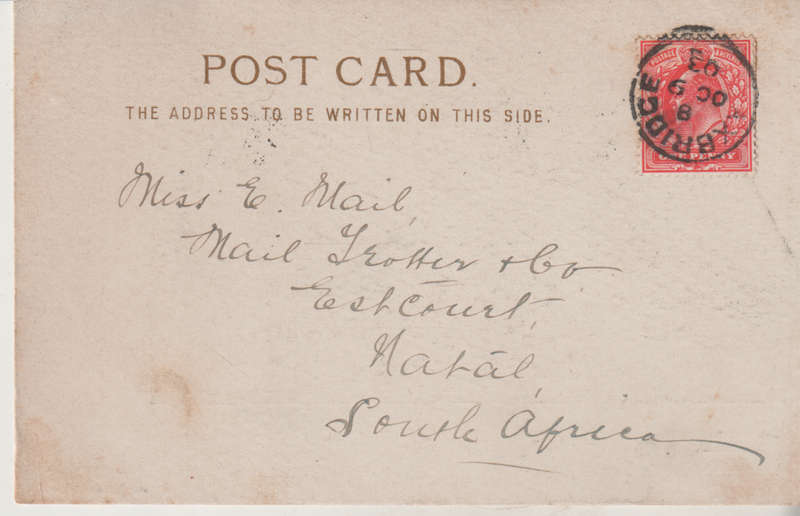 POST CARD.
THE ADDRESS TO BE WRITTEN ON THIS SIDE.
POSTAGE
ONE PENNY
XBRIDGE
8
OC 5
03
Miss E. Mail,
Mail Trotter & Co
Estcourt,
Natal,
South Africa